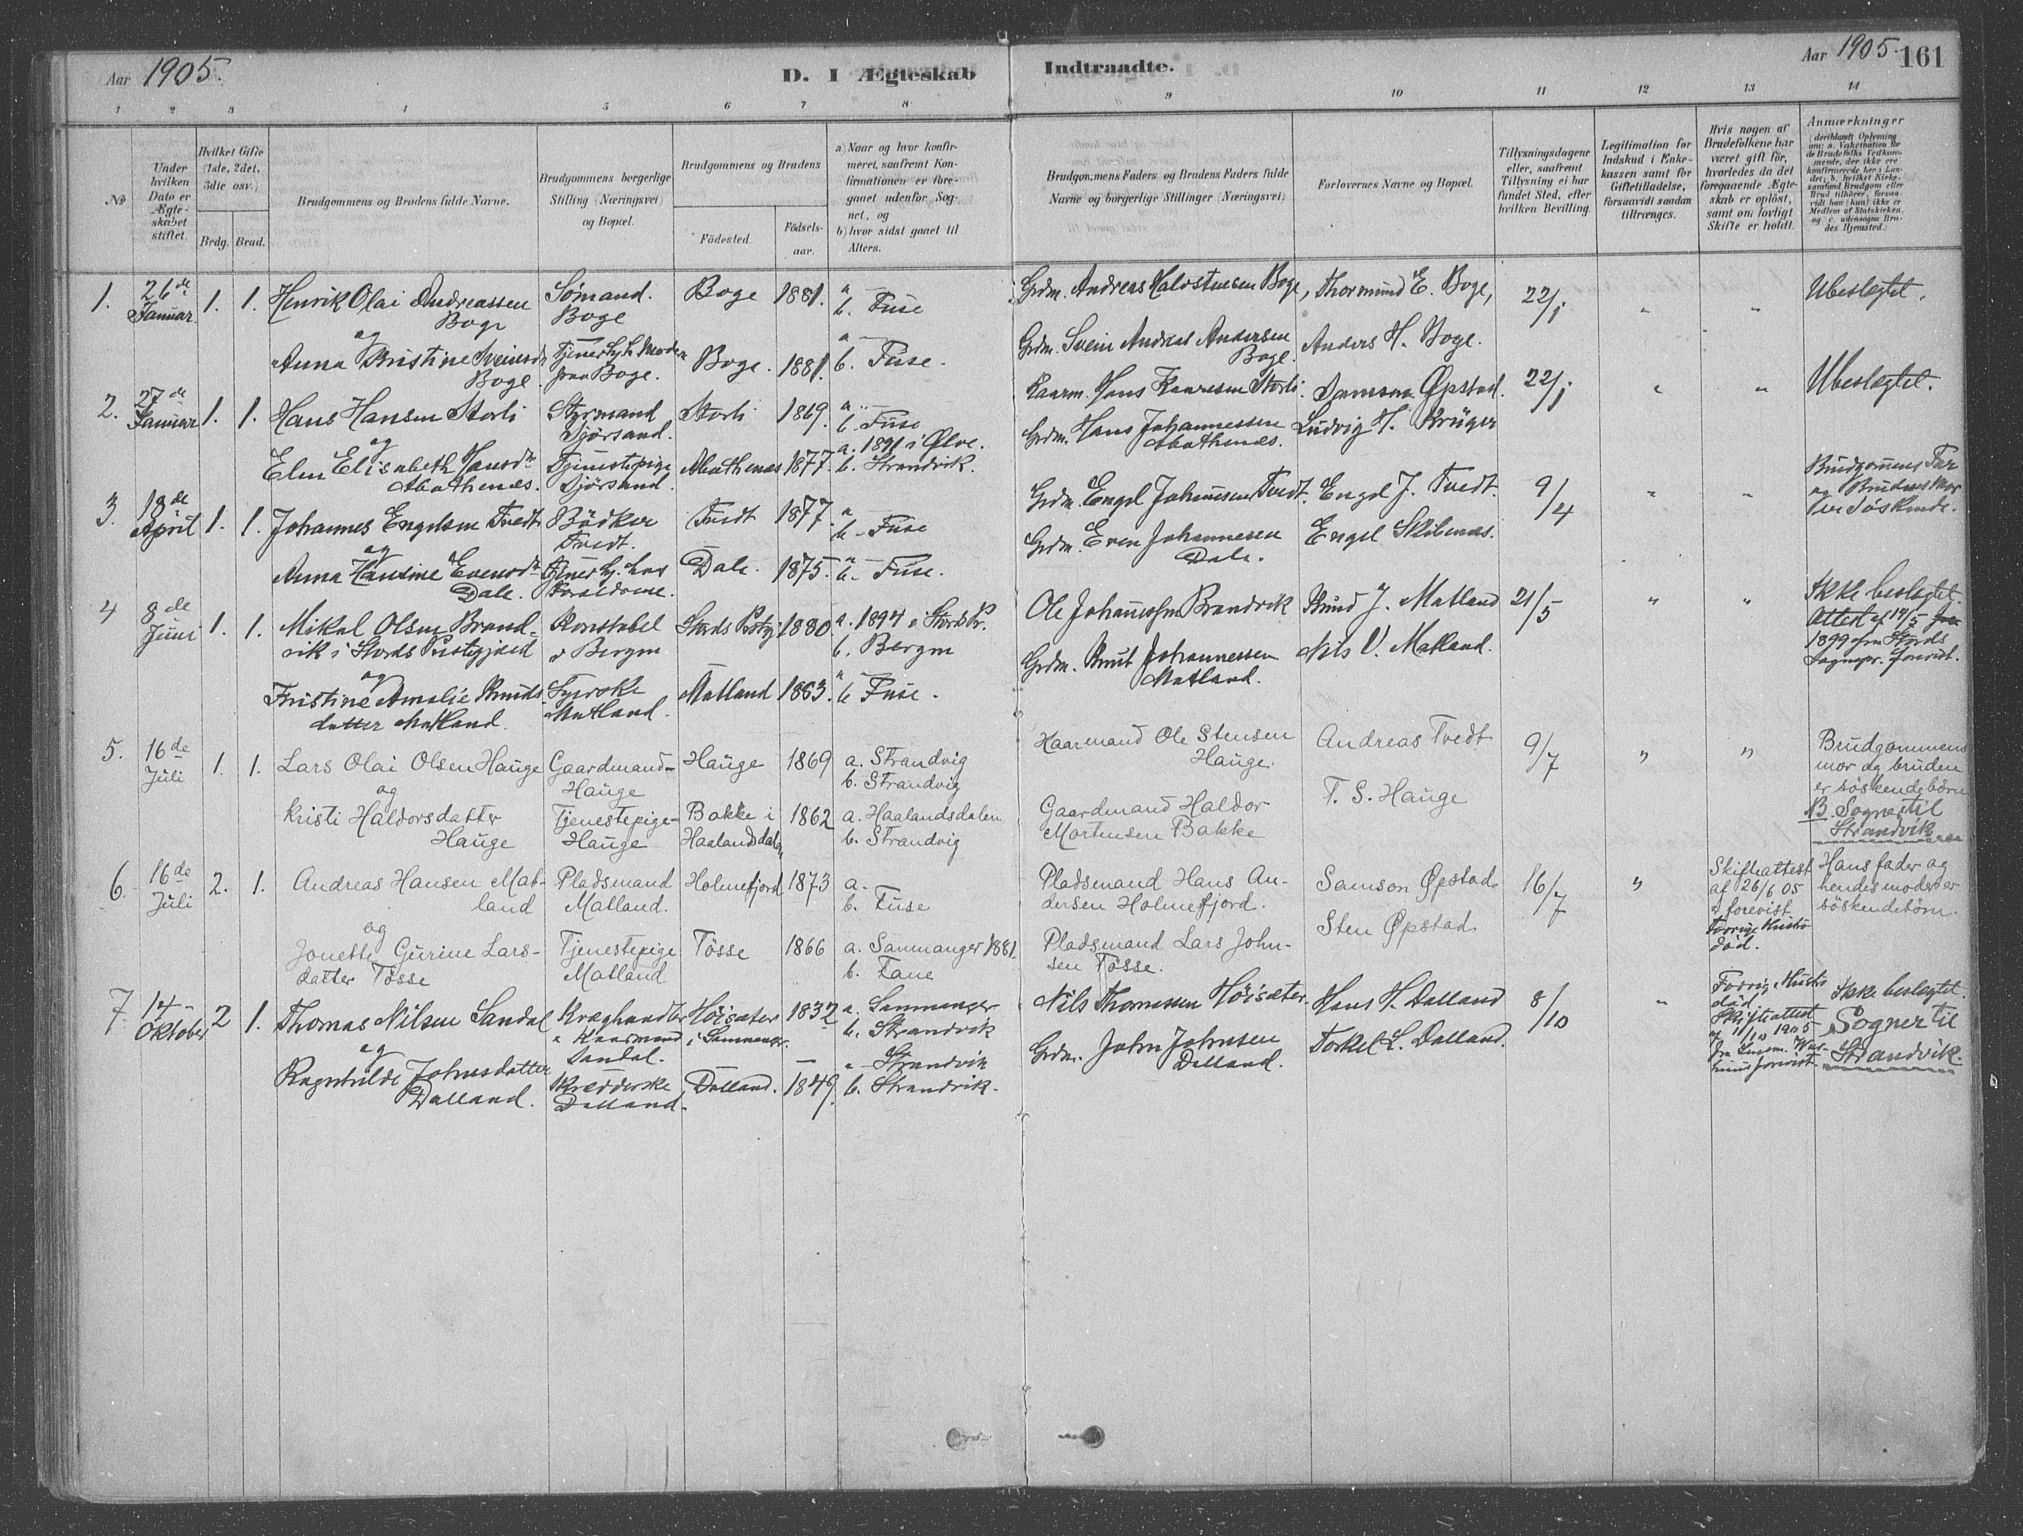 Aar 1905.
D. I Ægteskab Indtraadte.
Aar 1905. 161
1 2 3 4 5 6 7 8 9 10 11 12 13 14
No
Under hvilken Dato er Ægteskabet stiftet.
Hvilket Gifte (1ste, 2det, 3die osv.)
Brdg. Brud.
Brudgommens og Brudens fulde Navne.
Brudgommens borgerlige Stilling (Næringsvei) og Bopæl.
Brudgommens og Brudens
Fødested. Fødselsaar.
a) Naar og hvor konfirmeret, saafremt Konfirmationen er foregaaet udenfor Sognet, og
b) hvor sidst gaaet til Alters.
Brudgommens Faders og Brudens Faders fulde Navne og borgerlige Stillinger (Næringsvei)
Forlovernes Navne og Bopæl.
Tillysningsdagene eller, saafremt Tillysning ei har fundet Sted, efter hvilken Bevilling.
Legitimation for Indskud i Enkekassen samt for Giftetilladelse, forsaavidt saadan tiltrænges.
Hvis nogen af Brudefolkene har været gift før, hvorledes da det foregaaende Ægteskab er opløst, samt om lovligt Skifte er holdt.
Anmærkninger
1. 26de Januar 1. 1. Henrik Olai Andreassen Boge Sømand. Boge Boge 1881. a – b. Fuse Grdm. Andreas Halvstensen Boge, Thormund E. Boge, 22/1 " " Ubeslægtet.
og
Anna Kristine Sveinsdr Boge. fra Boge. Boge. 1881. a – b. Fuse. Grdm. Svein Andreas Andersen Boge. Anders H. Boge.
2. 27de Januar 1. 1. Hans Hansen Storli Styrmand Sjørsand. Storli 1869. a – b. Fuse Hans Storli. Samson Øpstad. 22/1 " " Ubeslægtet.
og
Elen Elisabeth Hansdr Tjenestepige Sjørsand. 1877. a. 1891 i Ølve. b. Strandvik. Grdm. Hans Johannessen Ludvig H. Krüger
3. 18de April 1. 1. Johannes Engelsen Tvedt Bødker Tvedt. Tvedt 1877. a – b – Fuse Grdm. Engel Johannessen Tvedt. Engel J. Tvedt. 9/4 " " Brudgommens Far og Brudens Mor ere Søskende.
og
Anna Hansine Evensdr Dale. Tjener hj. hos Forældrene. Dale. 1875. a – b. Fuse. Grdm. Even Johannessen Dale. Engel Skibenes.
4 8de Juni 1. 1. Mikal Olsen Brandvik i Stords Prestegjæld Konstabel i Bergen 1880. a. 1894 i Stords Pr. b. Bergen Ole Johannessen Brandvik Knud J. Matland 21/5 " " Ikke beslægtet. Attest af 14/5 1899 fra Stords Sognepr. forevist.
og
Kristine Amalie Knudsdatter Matland Syerske Matland. Matland 1883. a – b. Fuse. Grdm. Knut Johannessen Matland. Nils V. Matland.
5. 16de Juli 1. 1. Lars Olai Olsen Hauge Gaardmand – Hauge Hauge 1869 a. Strandvig b. Strandvig Kaarmand Ole Stensen Hauge. Andreas Tvedt 9/7 " " Brudgommens mor og bruden er søskendebørn NB. Sogner til Strandvik
og
Kristi Haldorsdatter Hauge Tjenestepige – Hauge Bakke i Haalandsdalen 1862 a. Haalandsdalen b. Strandvig Gaardmand Haldor Mortensen Bakke T. S. Hauge
6. 16de Juli 2. 1. Andreas Hansen Matland Pladsmand Matland. Holmefjord 1873 a. b. Fuse Pladsmand Hans Andersen Holmefjord. Samson Øpstad 16/7 " Skifteattest af 26/6 05 forevist. Forrige Hustru død. Hans fader og hendes moder er søskendebørn.
og
Jonette Gurine Larsdatter Tøsse Tjenestepige Matland Tøsse 1866 a. Samnanger 1881. b. Fane Pladsmand Lars Johnsen Tøsse. Sten Øpstad
7. 14 – Oktober 2 1. Thomas Nilsen Sandal Kræghandler & Kaarmand Sandal. Höisæter i Samnanger. 1832 a. Samnanger b. Strandvik Nils Thomessen Höisæter. Hans H. Dalland 8/10 " Forrige Hustru död. Skifteattest af 11/10 1905 forevist. Ikke beslægtet. Sogner til Strandvik.
og
Ragnhilde Johnsdatter Dalland. Skrædderske Dalland. Dalland. 1849. a – Strandvik b. Strandvik. Grdm. John Johnsen Dalland. Torkel L. Dalland.